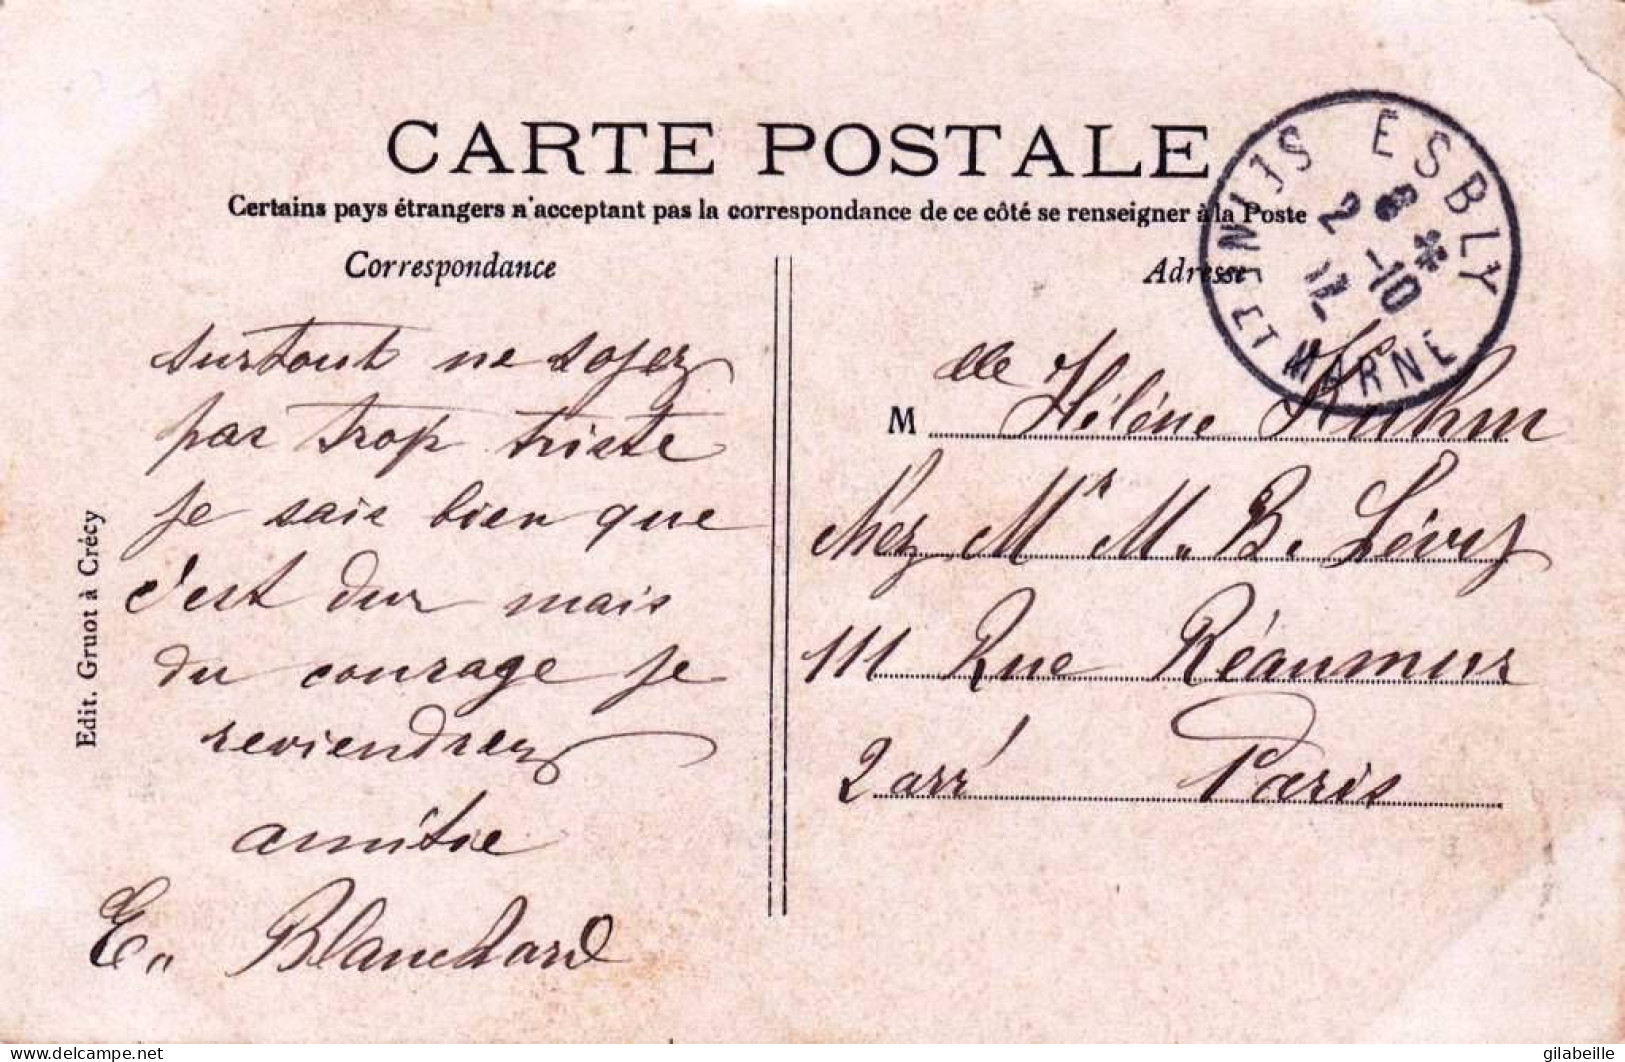 CARTE POSTALE
Certains pays étrangers n'acceptant pas la correspondance de ce côté se renseigner à la Poste
Correspondance
Adresse
surtout ne soyez
pas trop triste
je sais bien que
c'est dur mais
du courage je
reviendrez
amitie
E. Blanchard
Edit. Gruot à Crécy
Melle Hélène Kuhm
chez Mr M. B. Lévy
111 Rue Réaumur
2 arrt Paris
ESBLY
SEINE ET MARNE
8 *
2 -10
12
delcampe.net
gilabeille